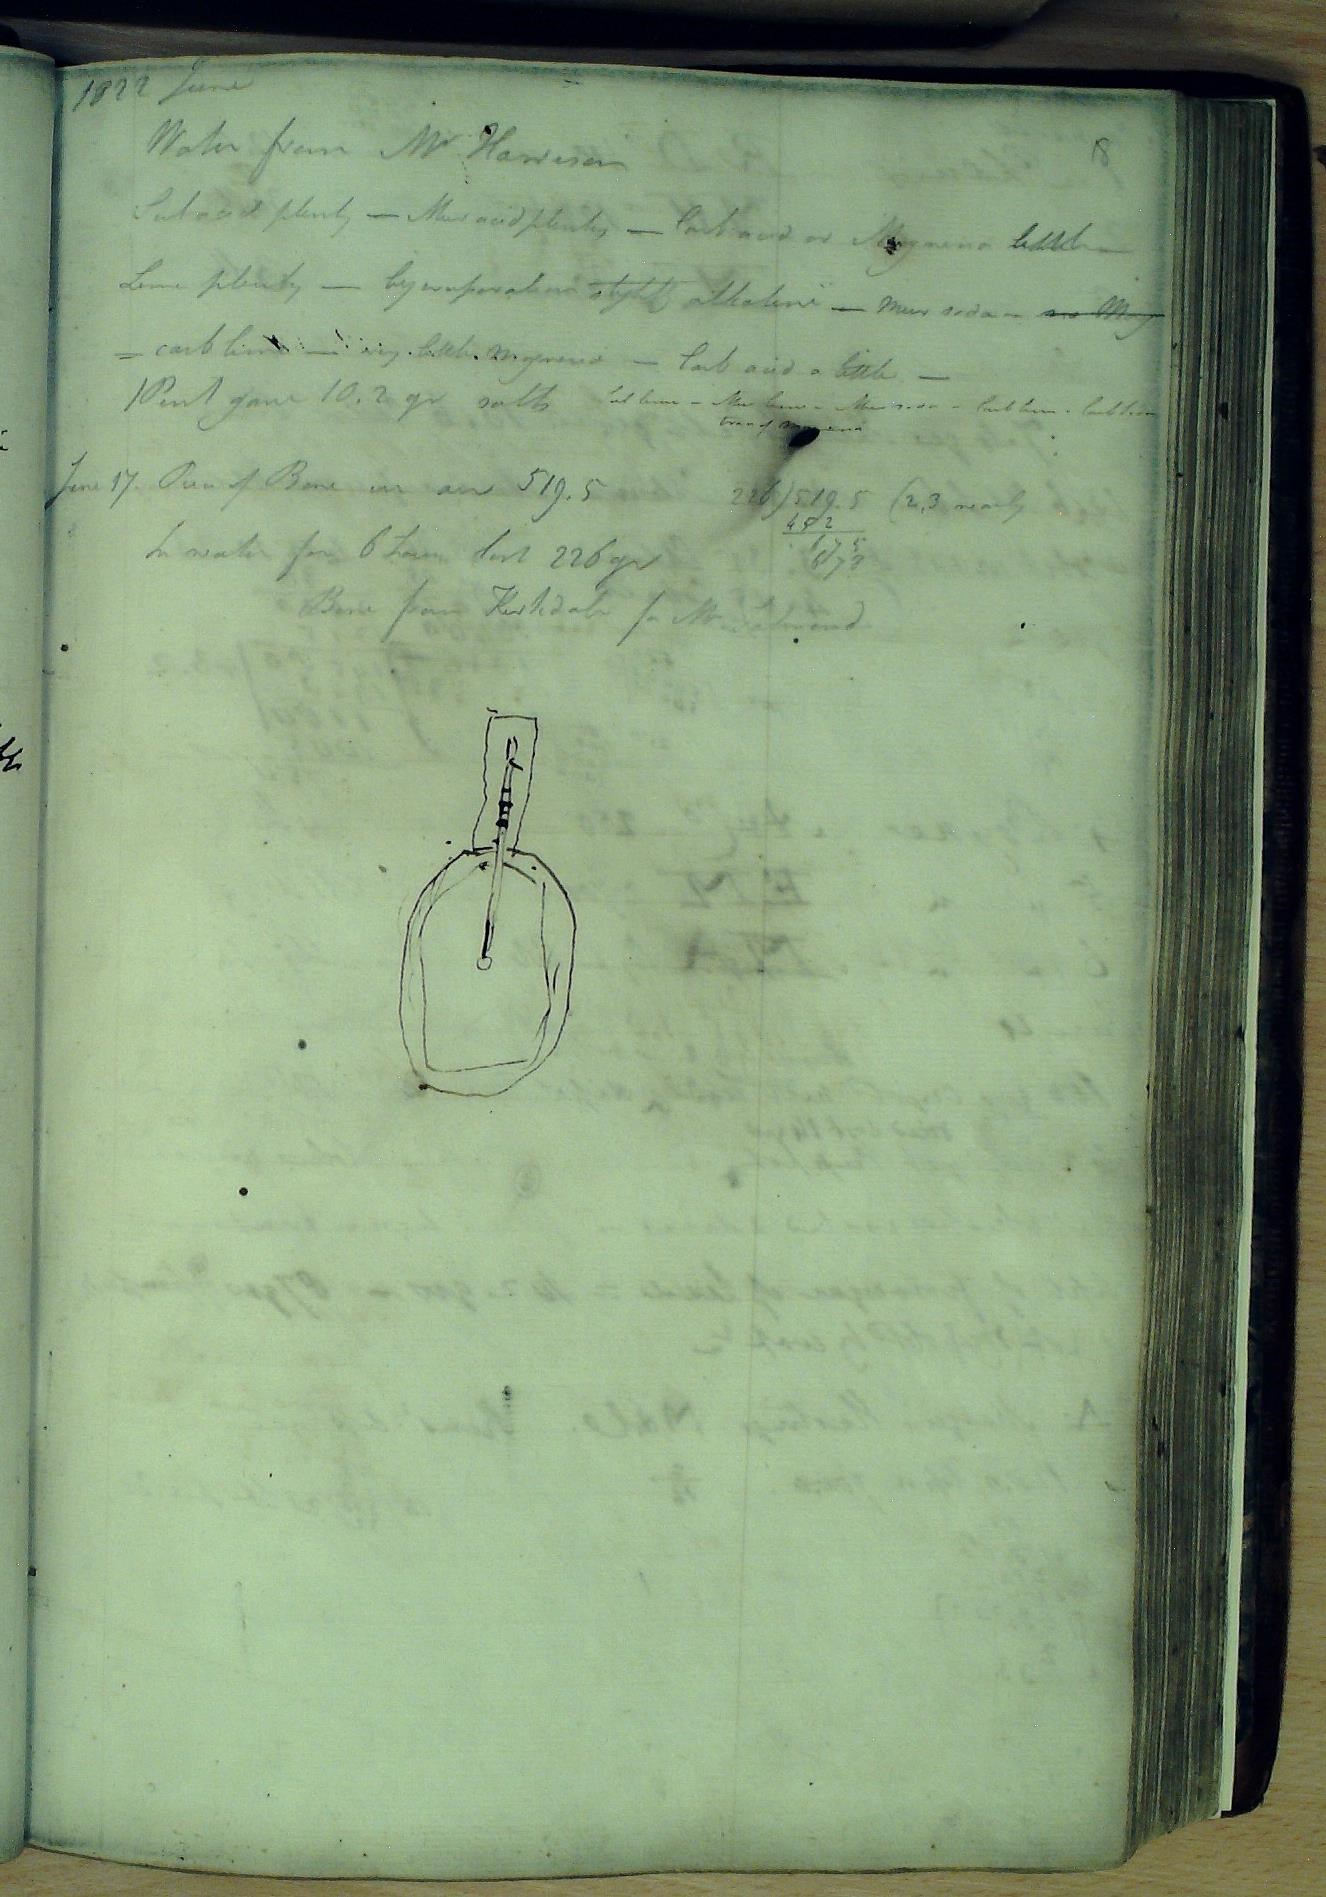 1822 June
18
Water from Mr Harrison
Sul acid plenty — Mur acid plenty — Carb acid or Magnesia little —
Lime plenty — by evaporation slightly alkaline — Mur soda — no Mag
= carb lime — very little magnesia — Carb acid a little —
1 Pint gave 10.2 gr salts Sul lime – Mur lime – Mur soda – Carb lime –
trace of magnesia
June 17. Piece of Bone in air 519.5 226)519.5 (2,3 nearly
452
675
678
In water for 6 hours lost 226 gr
Bone from Kirkdale for Mr Salmond